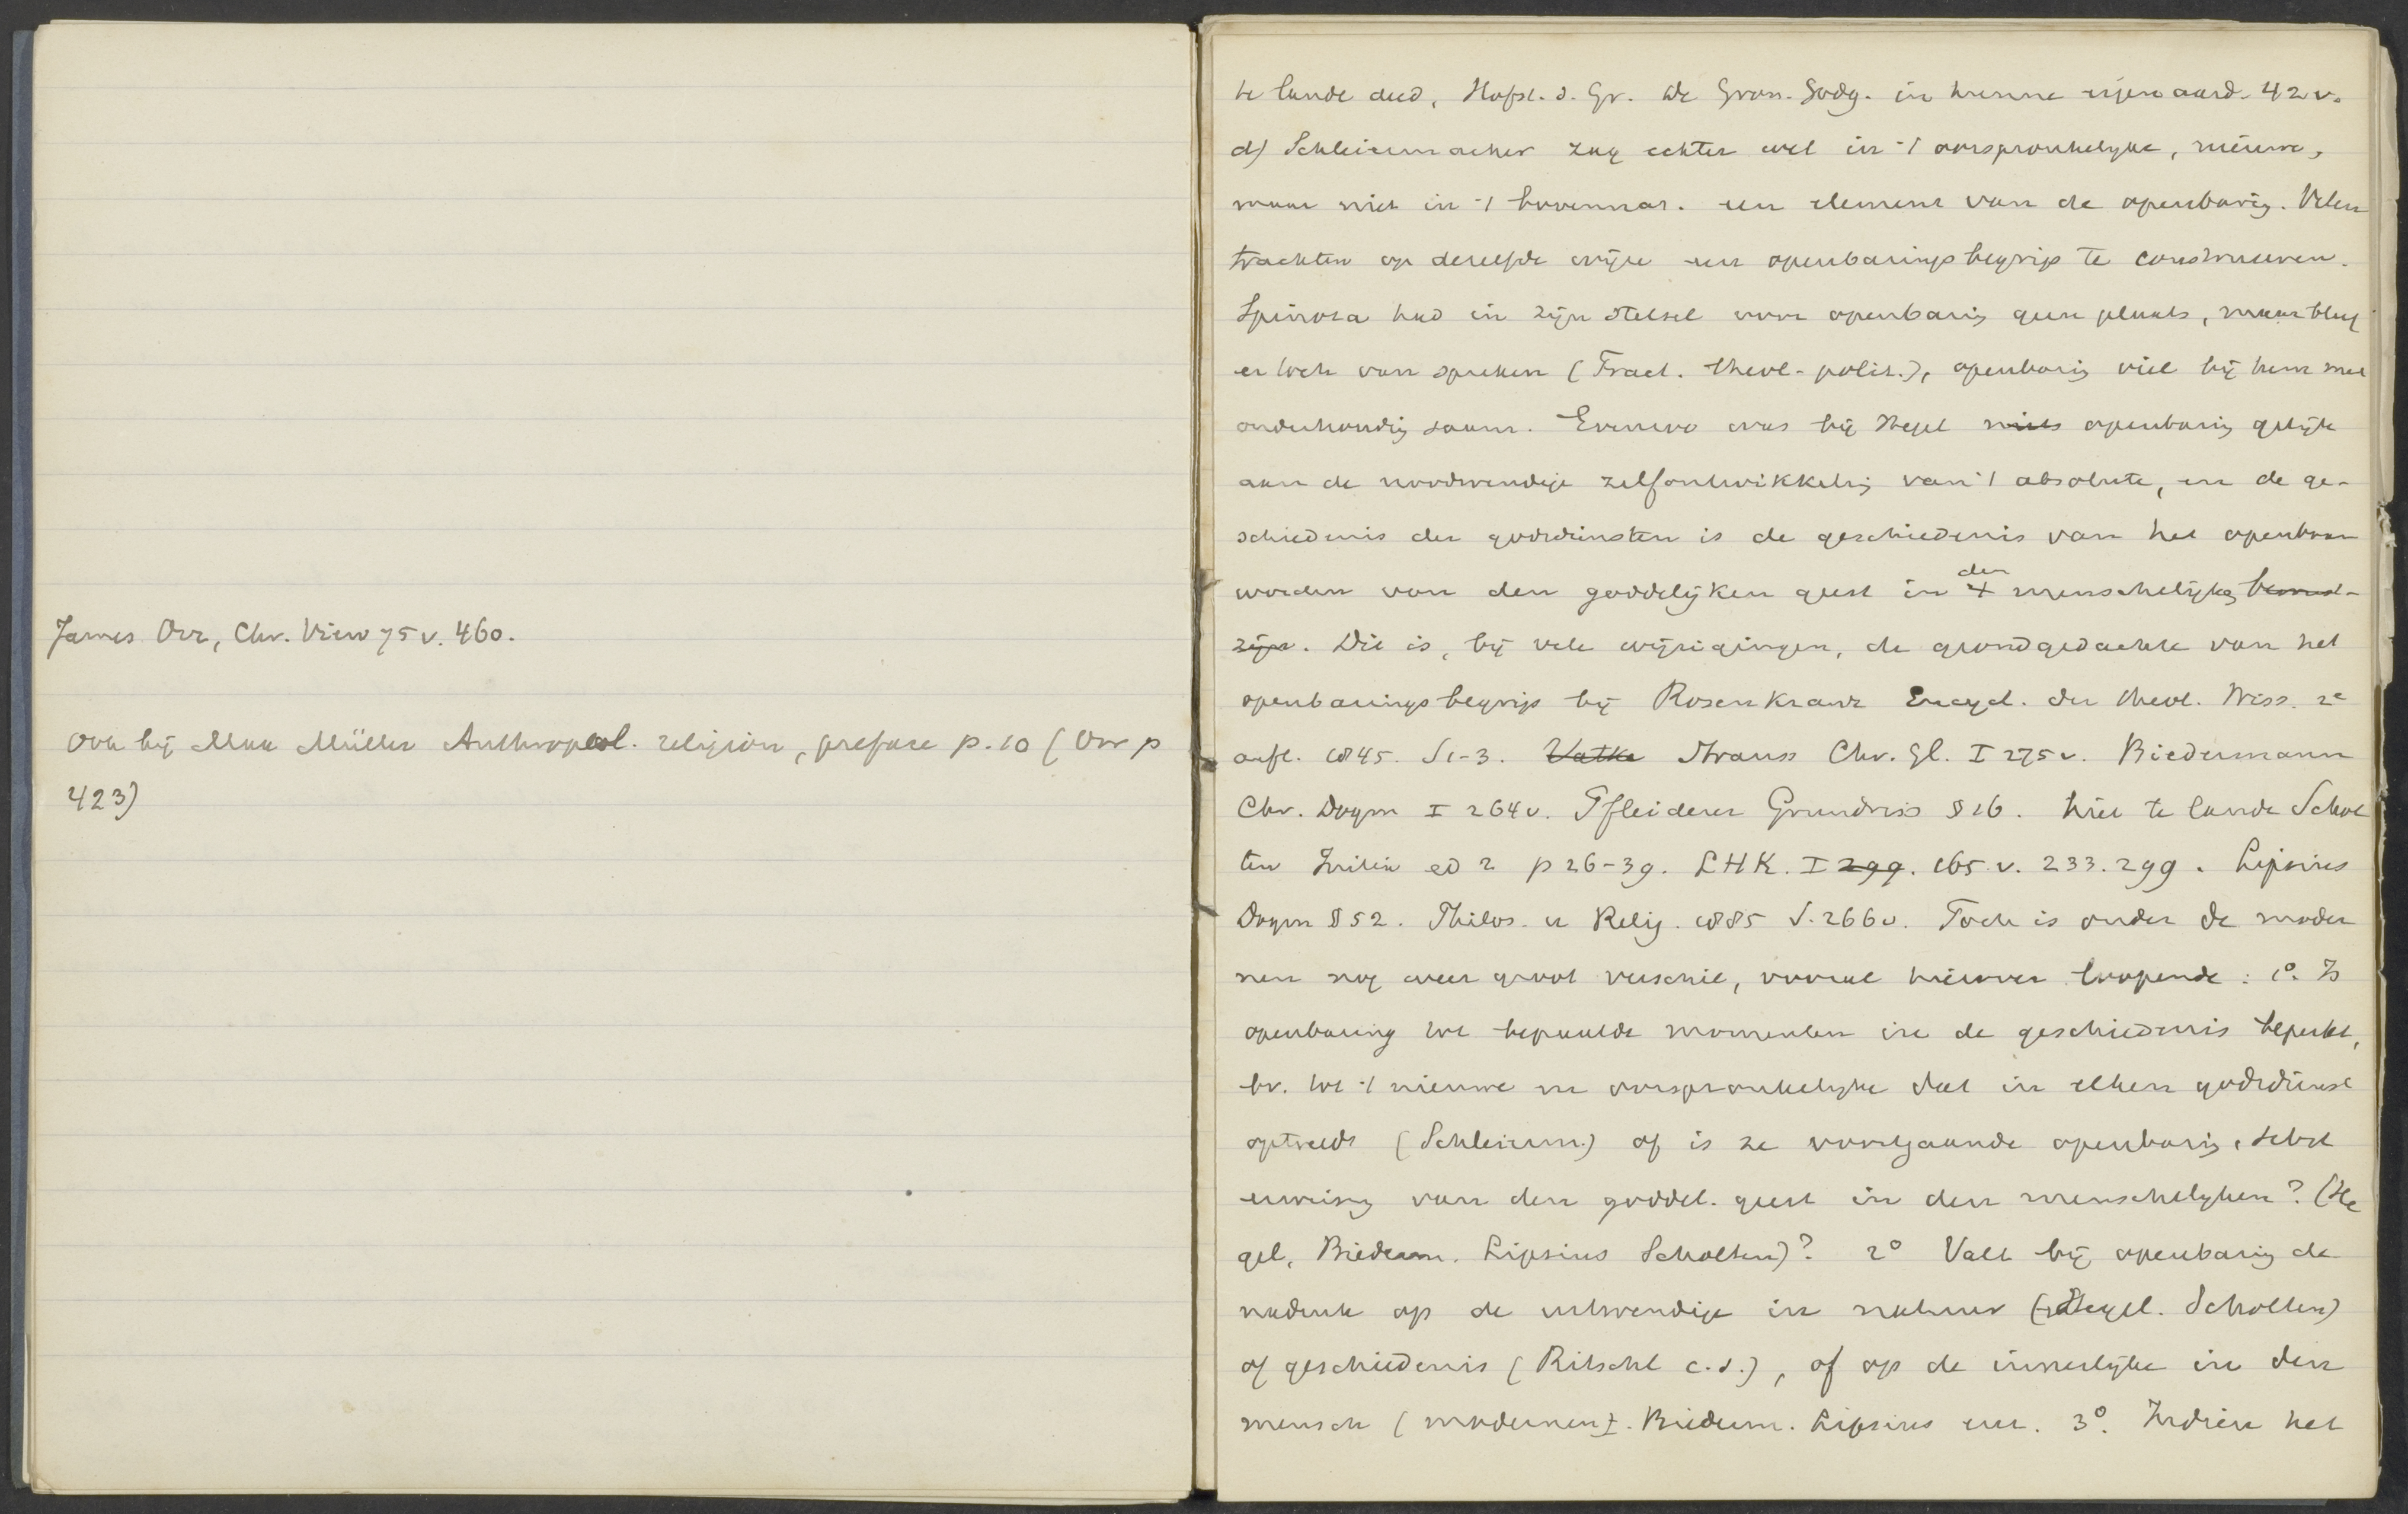 James Orr, Chr. View 75 v. 460.
Ook bij Max Müller Anthropol. religion, preface p. 10 (Orr p
423)
te lande deed, Hofst. d. Gr. de Gron. Godg. in hunne eigenaard. 42 v.
d) Schleiermacher zag echter wel in 't oorspronkelyke, nieuwe,
maar niet in 't bovennat. een element van de openbaring. Velen
trachten op dezelfde wijze een openbaringsbegrip te construeeren.
Spinoza had in zijn stelsel voor openbaring geen plaats, maar bleef
er toch van spreken (Tract. theol-polit.), openbaring viel bij hem met
onderhouding saam. Evenzo was bij Hegel niets openbaring gelijk
aan de noodwendige zelfontwikkeling van 't absolute, en de ge-
schiedenis der godsdiensten is de geschiedenis van het openbaar
worden van den goddelijken geest in 't den menschelijke bewust-
zijn. Dit is, bij vele wijzigingen, de grondgedachte van het
openbaringsbegrip bij Rosenkranz Encycl. der theol. Wiss. 2e
aufl. 1845. S 1-3. Vatke Strauss Chr. Gl. I 275 v. Biedermann
Chr. Dogm I 264 v. Pfleiderer Grundriss § 16. hier te lande Schol
ten Initia ed 2 p 26-39. LHK. I 299. 165 v. 233. 299. Lipsius
Dogm § 52. Philos. u Relig. 1885 S. 266 v. Toch is onder de moder
nen nog weer groot verschil, vooral hierover loopende: 1°. Is
openbaring tot bepaalde momenten in de geschiedenis beperkt,
bv. tot 't nieuwe en oorspronkelyke dat in elken godsdienst
optreedt (Schleierm.) of is ze voortgaande openbaring, Selbst
erweisung van den goddel. geest in den menschelyken? (He
gel, Biederm. Lipsius Scholten)? 2° Valt bij openbaring de
nadruk op de uitwendige in natuur (Hegel. Scholten)
of geschiedenis (Ritschl c.s.), of op de innerlijke in den
mensch (modernen. Biederm. Lipsius enz. 3°. Indien het